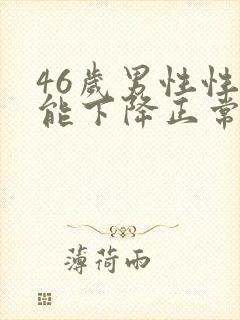 46岁男性性
能下降正常
薄荷雨